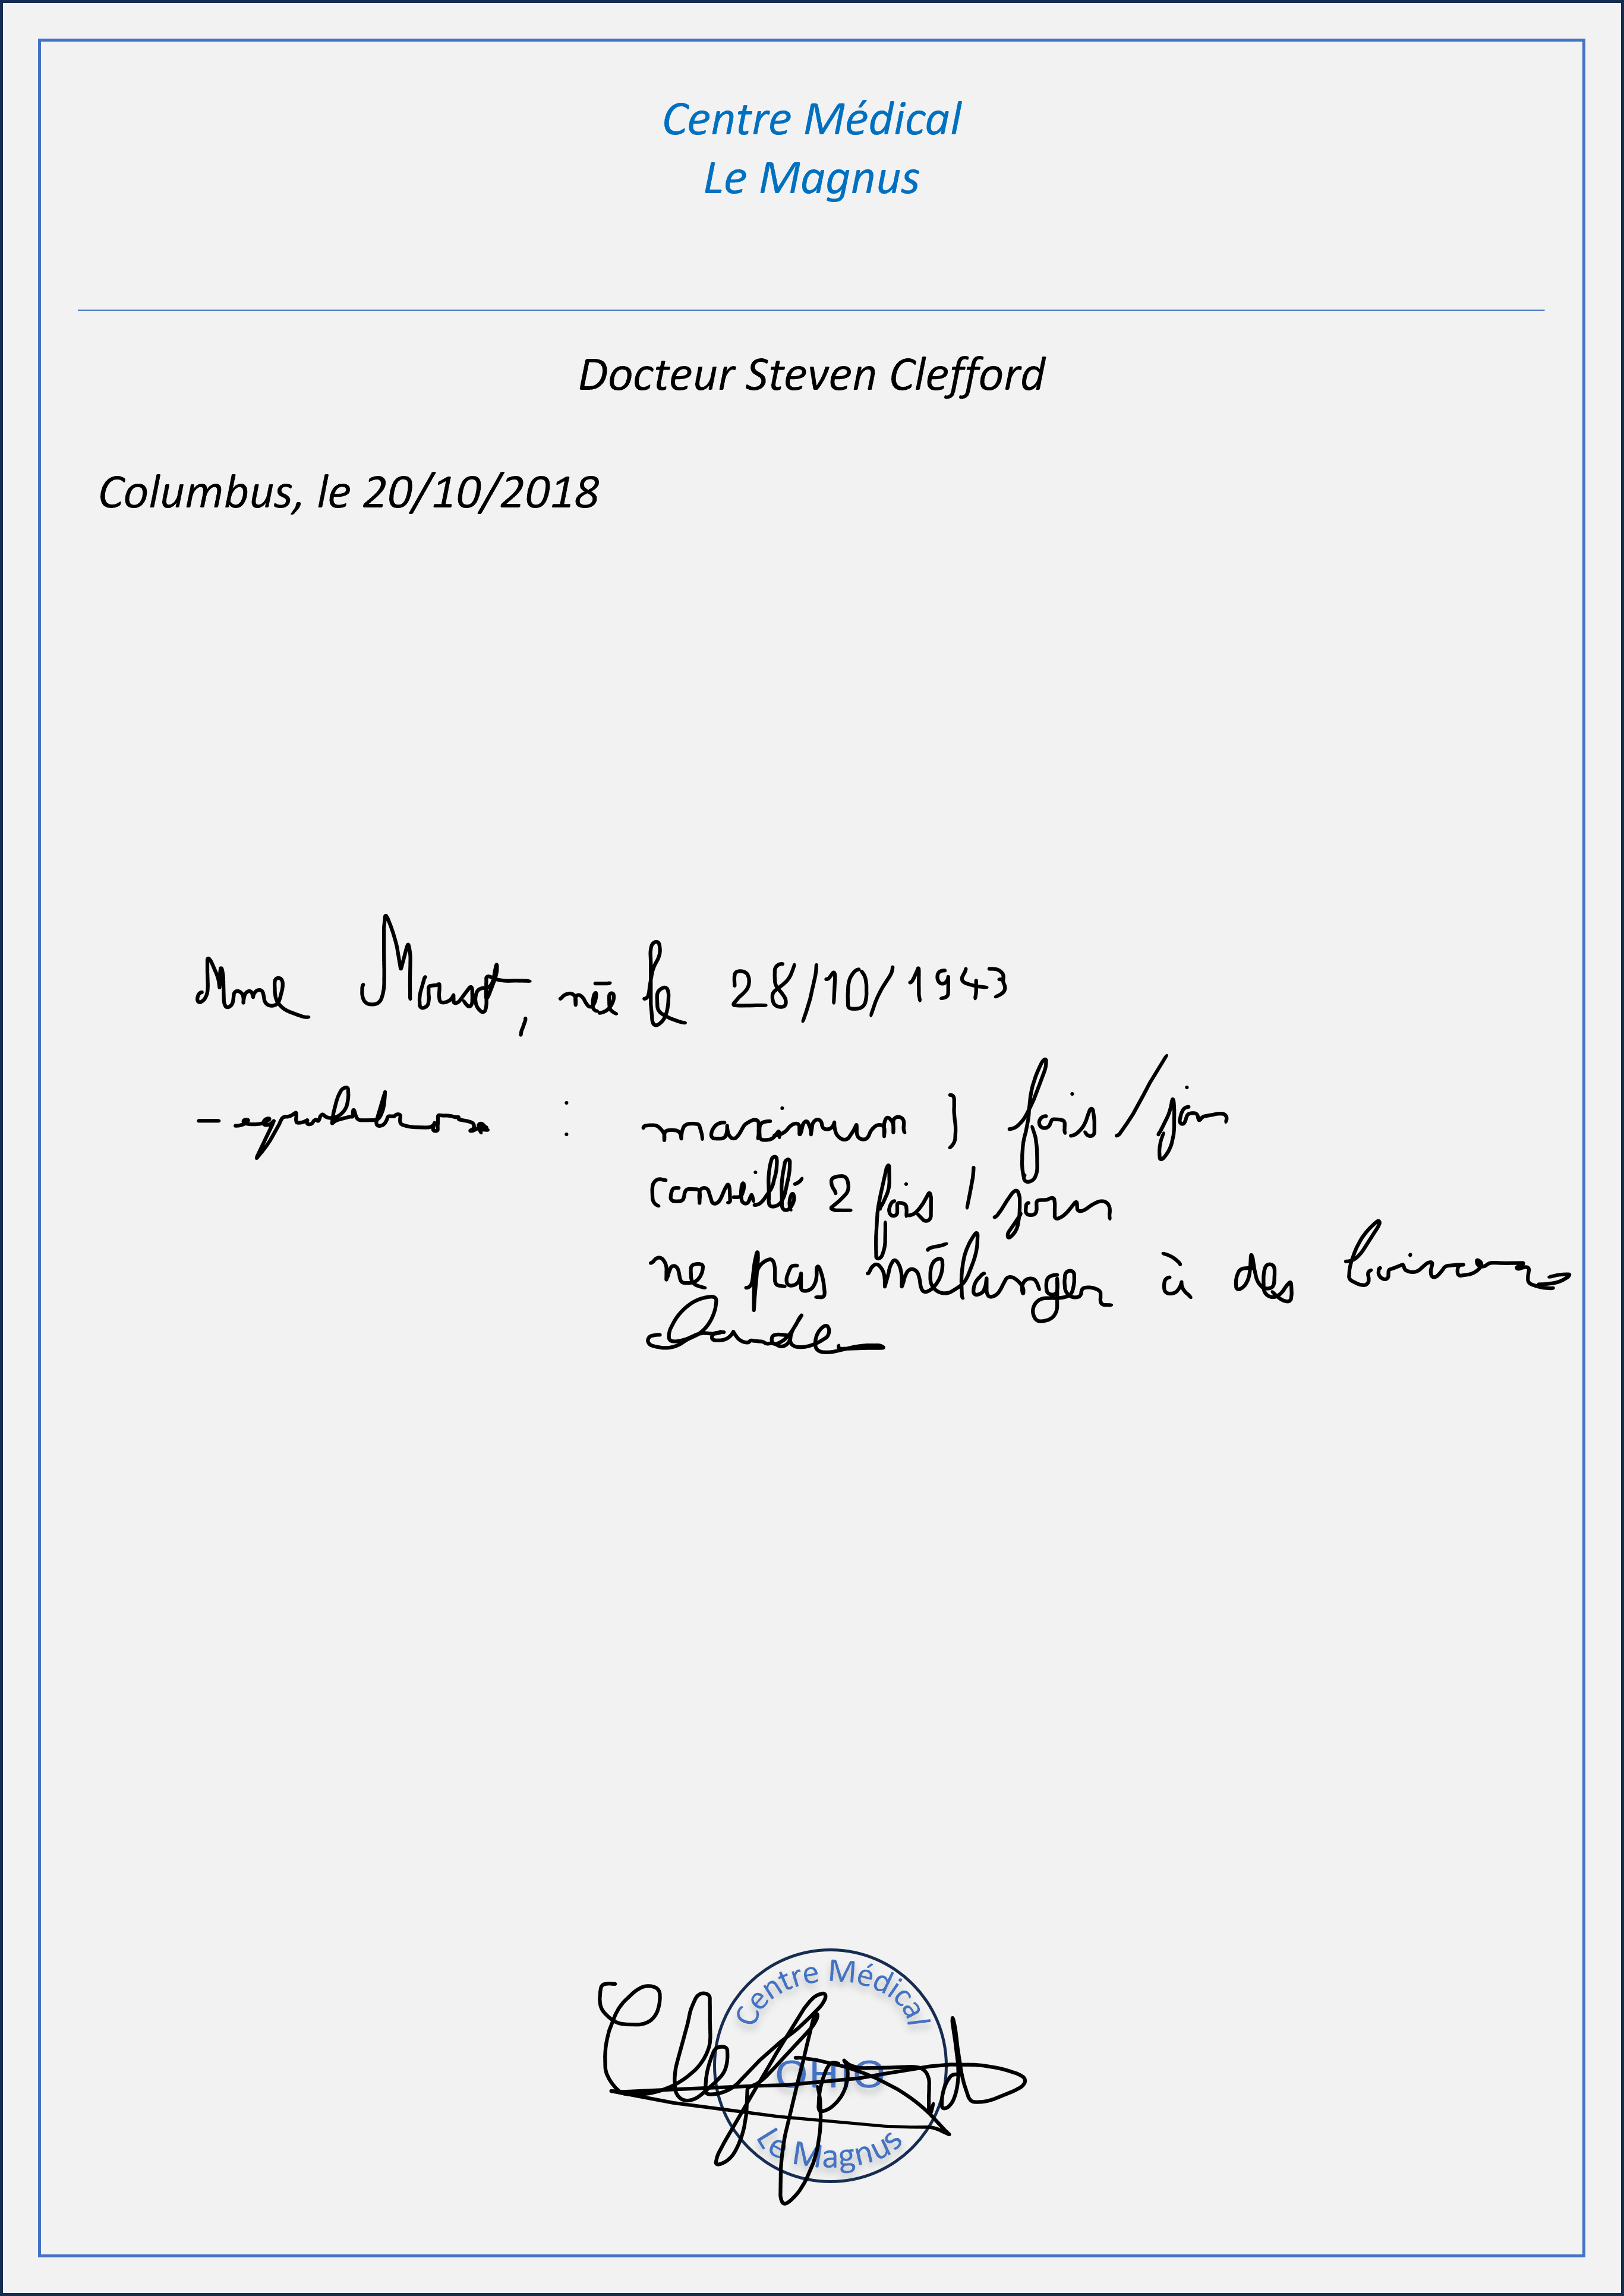 Centre Médical
Le Magnus
Docteur Steven Clefford
Columbus, le 20/10/2018
Mme né le 28/10/1943
- : maximum 3 fois/jour
conseillé 2 fois / jour
ne pas mélanger à des boissons
chaudes
Centre Médical
OHIO
Le Magnus
Clefford